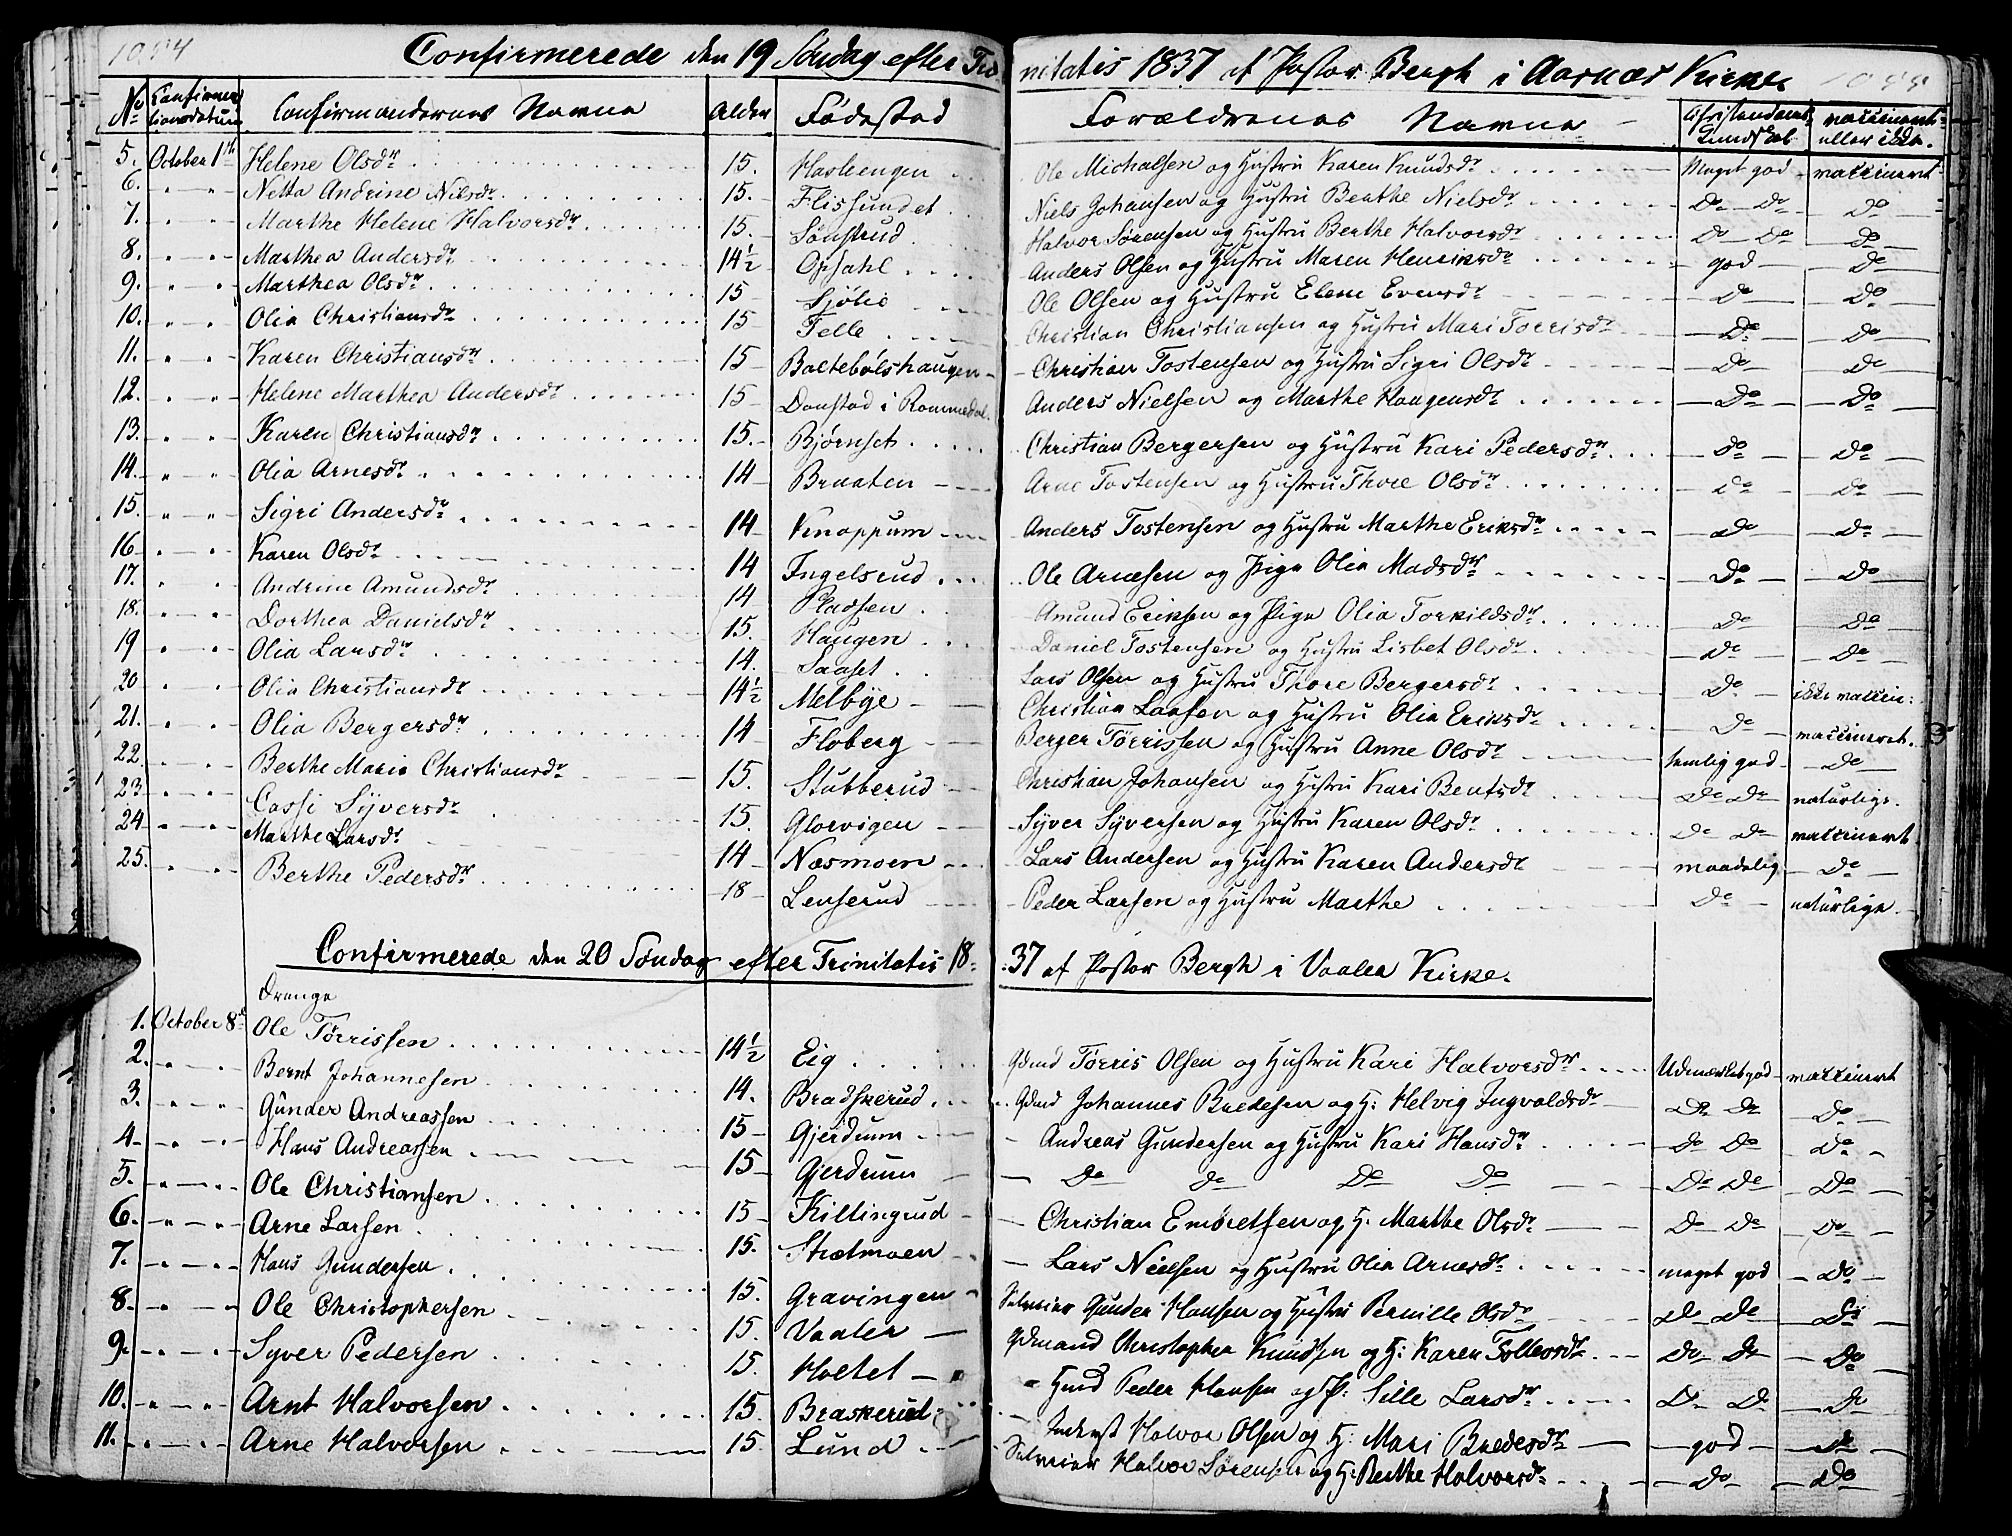 Confirmerede den 19 Søndag efter Trinitatis 1837 af Pastor Bergh i Aasnæs Kirke.
No Confirmationsdatum Confirmandernes Navne Alder Fødested Forældrenes Navne Christendoms Kundskab vaccineret eller ikke.
5. October 1ste Helene Olsdr 15. Hasliengen Ole Michalsen og Hustru Karen Knudsdr Meget god vaccineret
6. " " Netta Andrine Nilsdr 15. Flissundet Niels Johansen og Hustru Berthe Nielsdr Do Do Do
7. " " Marthe Helene Halvorsdr 15. Sønstrud Halvor Sørensen og Hustru Berthe Halvorsdr Do Do Do
8. " " Marthea Andersdr 14½ Opsahl Anders Olsen og Hustru Maren Henriksdr god Do
9. " " Marthea Olsdr 15 Sjølie Ole Olsen og Hustru Eleni Evensdr Do Do
10. " " Olia Christiansdr 15 Telle Christian Christiansen og Hustru Mari Torrisdr Do Do
11. " " Karen Christiansdr 15 Baltebølshaugen Christian Tostensen og Hustru Sigri Olsdr Do Do
12. " " Helene Marthea Andersdr 15 Donstad i Rommedal Anders Nielsen og Marthe Haagensdr Do Do
13. " " Karen Christiansdr 15. Bjørnset Christian Bergersen og Hustru Kari Pedersdr Do Do
14. " " Olia Arnesdr 14 Braaten Arne Tostensen og Hustru Thore Olsdr Do Do
15. " " Sigri Andersdr 14 Knappum Anders Tostensen og Hustru Marthe Eriksdr Do Do
16 " " Karen Olsdr 14 Ingelsrud Ole Arnesen og Pige Olia Madsdr Do Do
17. " " Andrine Amundsdr 14 Pladsen Amund Eriksen og Pige Olia Torkildsdr Do Do
18. " " Dorthea Danielsdr 15. Haugen Daniel Tostensen og Hustru Lisbet Olsdr Do Do
19 " " Olia Larsdr 14. Saaset Lars Olsen og Hustru Thore Bergersdr Do ikke vaccin:
20 " " Olia Christiansdr 14½ Melbye Christian Larsen og Hustru Olia Eriksdr Do vaccineret.
21. " " Olia Bergersdr 14 Floberg Berger Tørrissen og Hustru Anne Olsdr temlig god Do
22. " " Berthe Maria Christiansdr 15. Stubberud Christian Johansen og Hustru Kari Bentsdr Do Do naturlige.
23 " " Cassi Syversdr 15. Glorvigen Syver Syversen og Hustru Karen Olsdr Do Do vaccineret
24 " " Marthe Larsdr 14 Næsmoen Lars Andersen og Hustru Karen Andersdr maadelig Do
25. " " Berthe Pedersdr 18 Lenserud Peder Larsen og Hustru Marthe Do naturlige.
Confirmerede den 20 Søndag efter Trinitatis 1837 af Pastor Bergh i Vaaler Kirke.
Drenge
1. October 8de Ole Tørrissen 14½ Eig Gdmd Tørris Olsen og Hustru Kari Halvorsdr Udmærket god vaccineret
2. " " Bernt Johannesen 14. Bradskerud Gdmd Johannes Bredesen og H: Helvig Ingvaldsdr Do Do Do
3. " " Günder Andreassen 15 Gjerdum Andreas Gundersen og Hustru Kari Hansdr Do Do Do
4 " " Hans Andreassen 15 Gjerdrum Do Do Do Do Do Do Do
5. " " Ole Christiansen 15 Killingrud Christian Embretsen og H: Marthe Olsdr Do Do Do
6. " " Arne Larsen 15. Strætmoen Lars Nielsen og Hustru Olia Arnesdr meget god Do
7. " " Hans Gundersen 15. Gravingen Selveier Gunder Hansen og Hustru Pernille Olsdr Do Do Do
8. " " Ole Christophersen 15. Vaaler Gdmand Christopher Knudsen og H: Karen Tollevsdr Do Do Do
9. " " Syver Pedersen 15. Holtet Hmd Peder Hansen og P: Sille Larsdr Do Do Do
10. " " Arnt Halvorsen 15. Braskerud Inderst Halvor Olsen og H: Mari Bredesdr god Do
11. " " Arne Halvorsen 15. Lund Selveier Halvor Sørensen og H: Berthe Halvorsdr Do Do